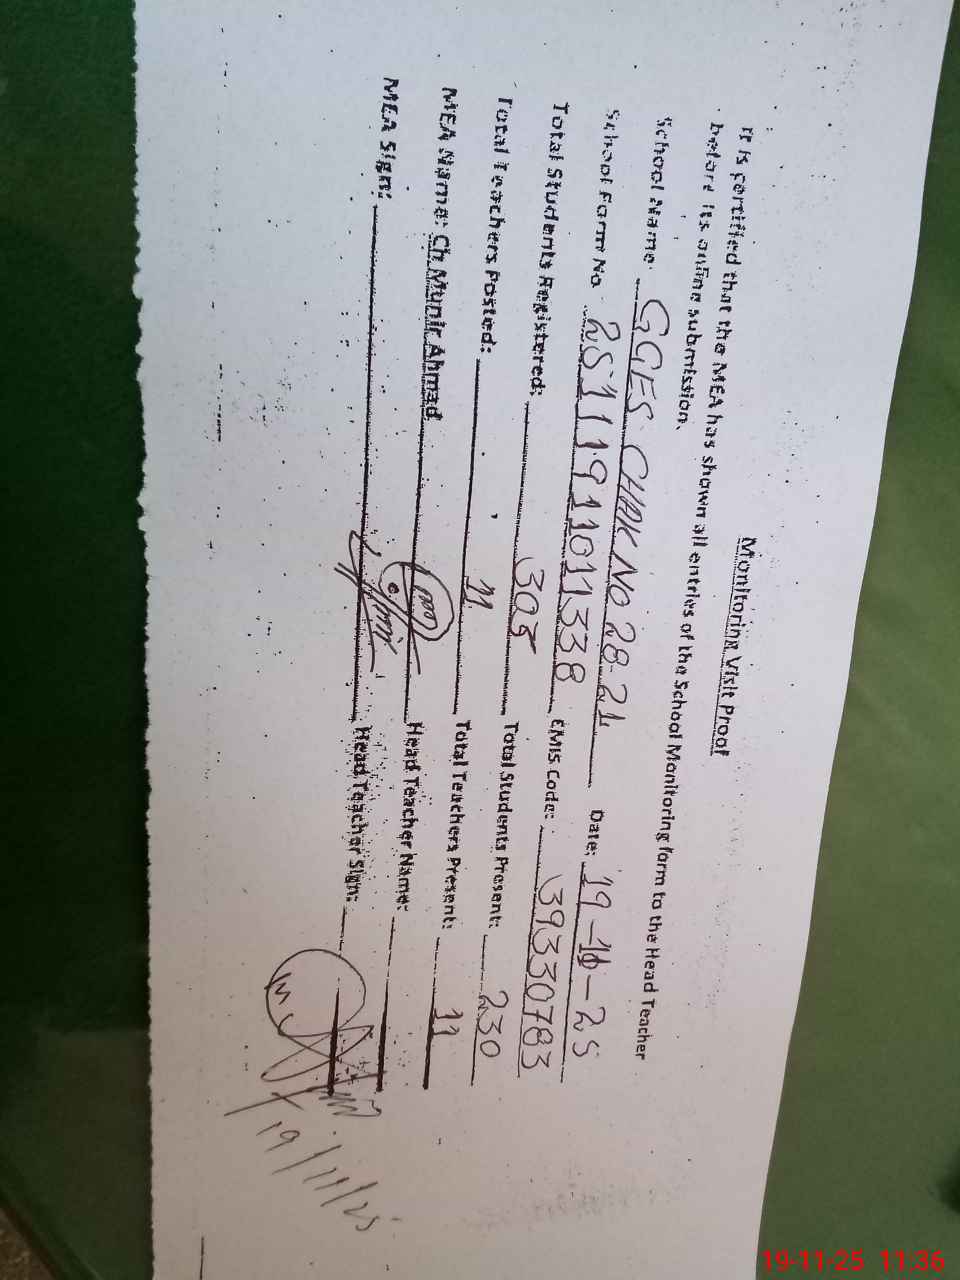 Monitoring Visit Proof
It is certified that the MEA has shown all entries of the School Monitoring form to the Head Teacher
before its online submission.
School Name: GGES CHAK NO 28-21 Date: 19-11-25
School Form No. 2511191101338 EMIS Code: 39330783
Total Students Registered: 303 Total Students Present: 230
Total Teachers Posted: 11 Total Teachers Present: 11
MEA Name: Ch Munir Ahmad Head Teacher Name:
MEA Sign: Head Teacher Sign:
19/11/25
19-11-25 11:36